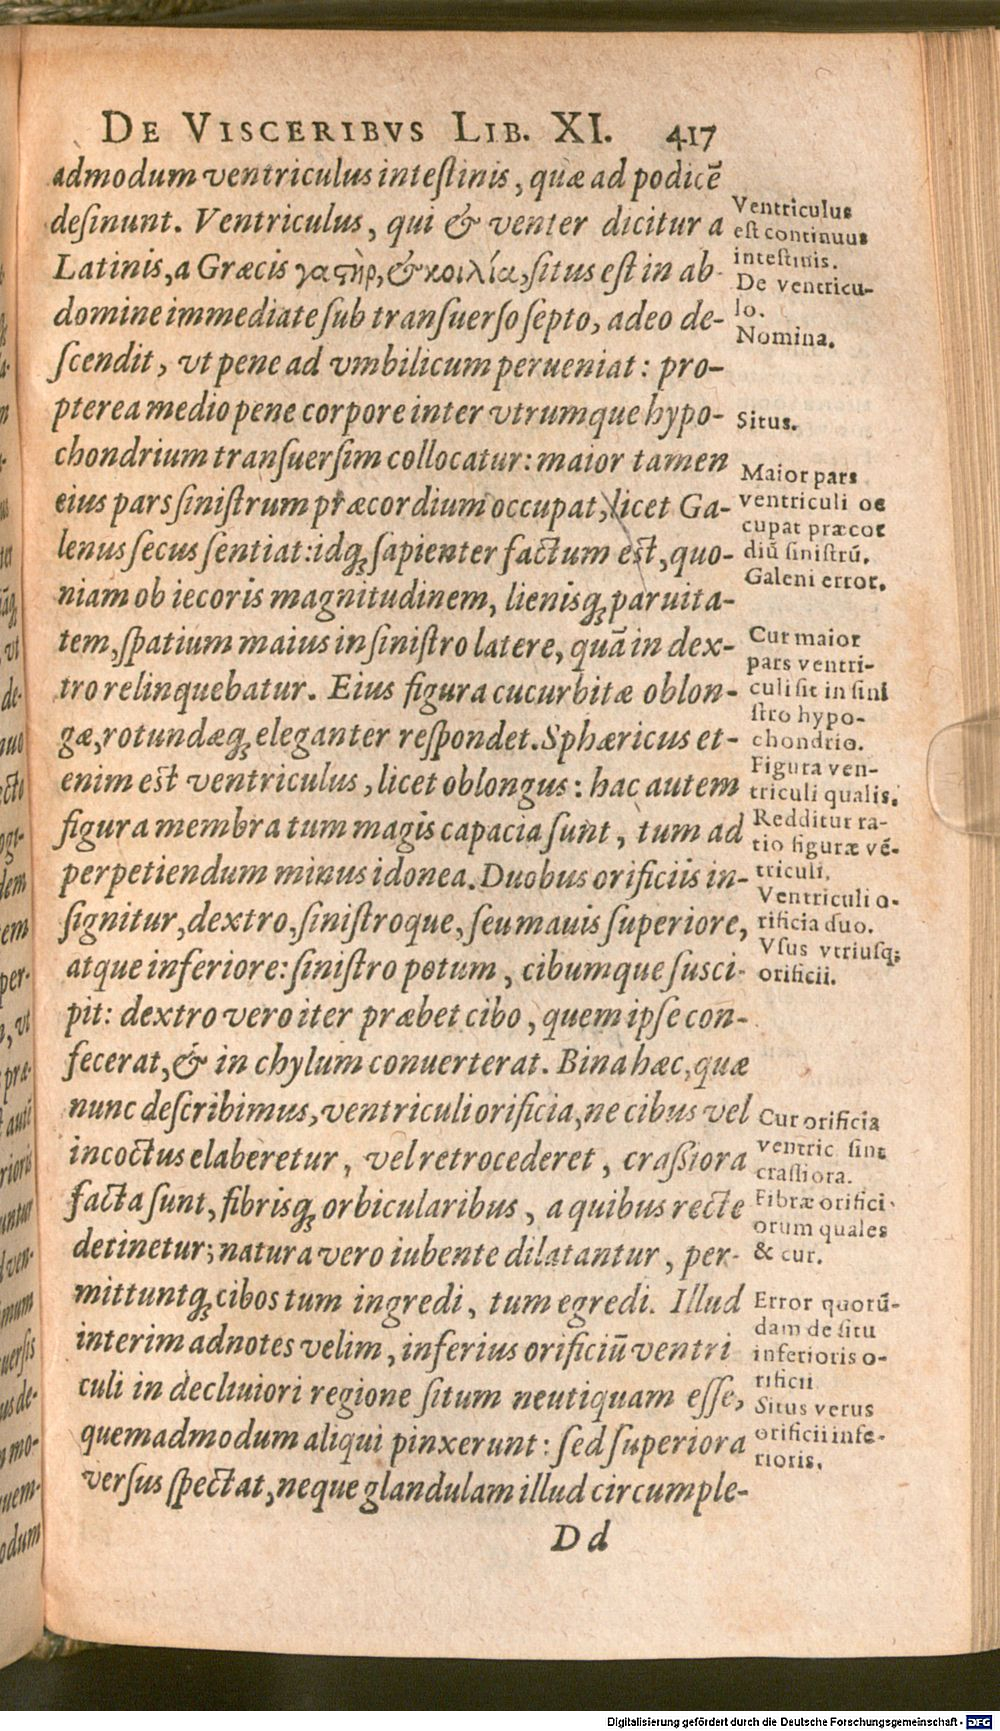 DE VISCERIBVS LIB. XI. 417
admodum ventriculus intestinis, quæ ad podicē
desinunt. Ventriculus, qui & venter dicitur a
Latinis, a Græcis γαϛὴρ, & κοιλία, situs est in ab-
domine immediate sub transuerso septo, adeo de-
scendit, vt pene ad vmbilicum perueniat: pro-
pterea medio pene corpore inter vtrumque hypo-
chondrium transuersim collocatur: maior tamen
eius pars sinistrum præcordium occupat, licet Ga-
lenus secus sentiat: idq; sapienter factum est, quo-
niam ob iecoris magnitudinem, lienisq; paruita-
tem, spatium maius in sinistro latere, quā in dex-
tro relinquebatur. Eius figura cucurbitæ oblon-
gæ, rotundæq; eleganter respondet. Sphæricus et-
enim est ventriculus, licet oblongus: hac autem
figura membra tum magis capacia sunt, tum ad
perpetiendum minus idonea. Duobus orificiis in-
signitur, dextro, sinistroque, seu mauis superiore,
atque inferiore: sinistro potum, cibumque susci-
pit: dextro vero iter præbet cibo, quem ipse con-
fecerat, & in chylum conuerterat. Bina hæc, quæ
nunc describimus, ventriculi orificia, ne cibus vel
incoctus elaberetur, vel retrocederet, crassiora
facta sunt, fibrisq; orbicularibus, a quibus recte
detinetur; natura vero iubente dilatantur, per-
mittuntq; cibos tum ingredi, tum egredi. Illud
interim adnotes velim, inferius orificiū ventri
culi in decliuiori regione situm neutiquam esse,
quemadmodum aliqui pinxerunt: sed superiora
versus spectat, neque glandulam illud circumple-
Dd
Ventriculus
est continuus
intestinis.
De ventricu-
lo.
Nomina.
Situs.
Maior pars
ventriculi oc
cupat præcor
diū sinistrū.
Galeni error.
Cur maior
pars ventri-
culi sit in sini
stro hypo-
chondrio.
Figura ven-
triculi qualis.
Redditur ra-
tio figuræ vē-
triculi.
Ventriculi o-
rificia duo.
Vsus vtriusq;
orificii.
Cur orificia
ventric sint
crassiora.
Fibræ orifici-
orum quales
& cur.
Error quorū-
dam de situ
inferioris o-
rificii
Situs verus
orificii infe-
rioris.
Digitalisierung gefördert durch die Deutsche Forschungsgemeinschaft - DFG